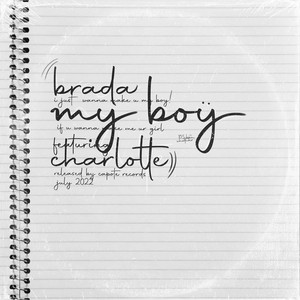 brada
i just wanna make u my boy!
my boÿ
if u wanna make me ur girl
featuring
charlotte))
released by capote records
july 2022